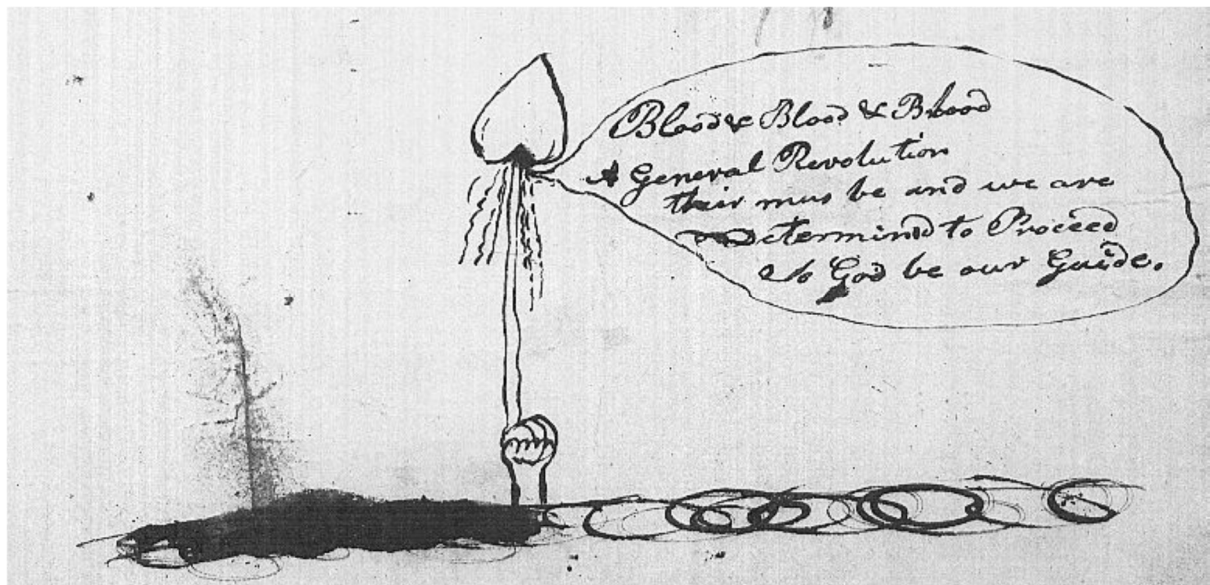 Blood & Blood & Blood
A General Revolution
their mus be and we are
Determind to Proceed
So God be our Guide.